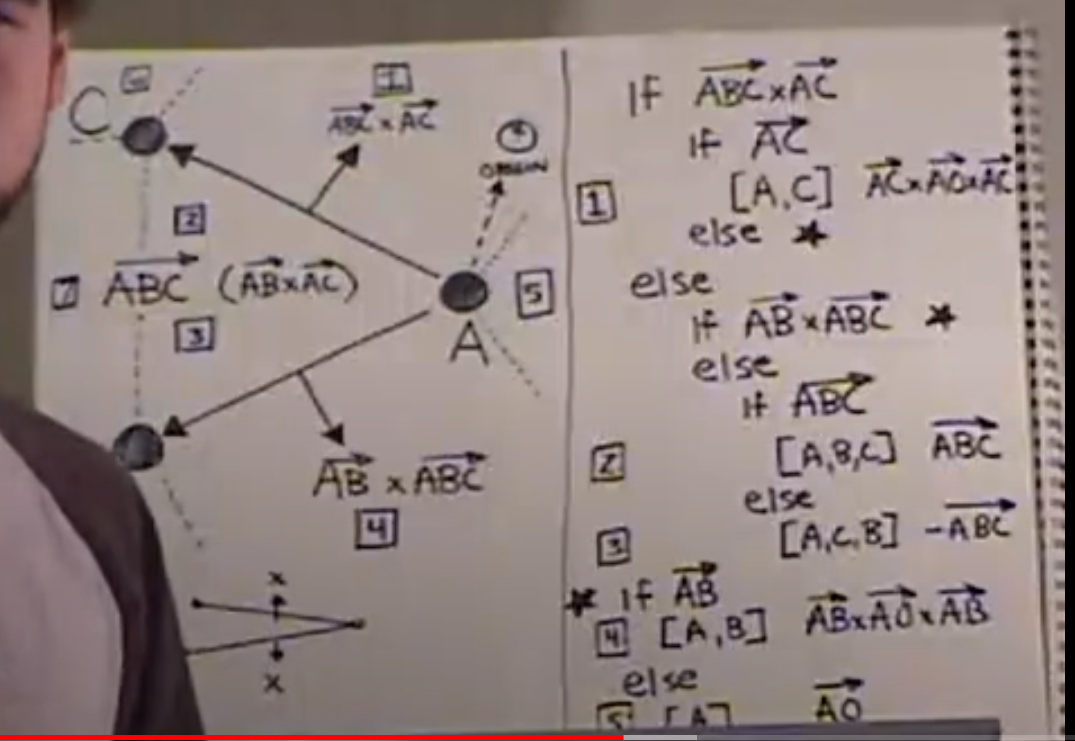 6
C
1
ABC × AC
ORIGIN
2
7 ABC (AB×AC)
3
5
A
AB × ABC
4
x
x
If ABC × AC
If AC
1 [A,C] AC×AO×AC
else ★
else
If AB × ABC ★
else
If ABC
2 [A,B,C] ABC
else
3 [A,C,B] -ABC
★ If AB
4 [A,B] AB×AO×AB
else
5 [A] AO